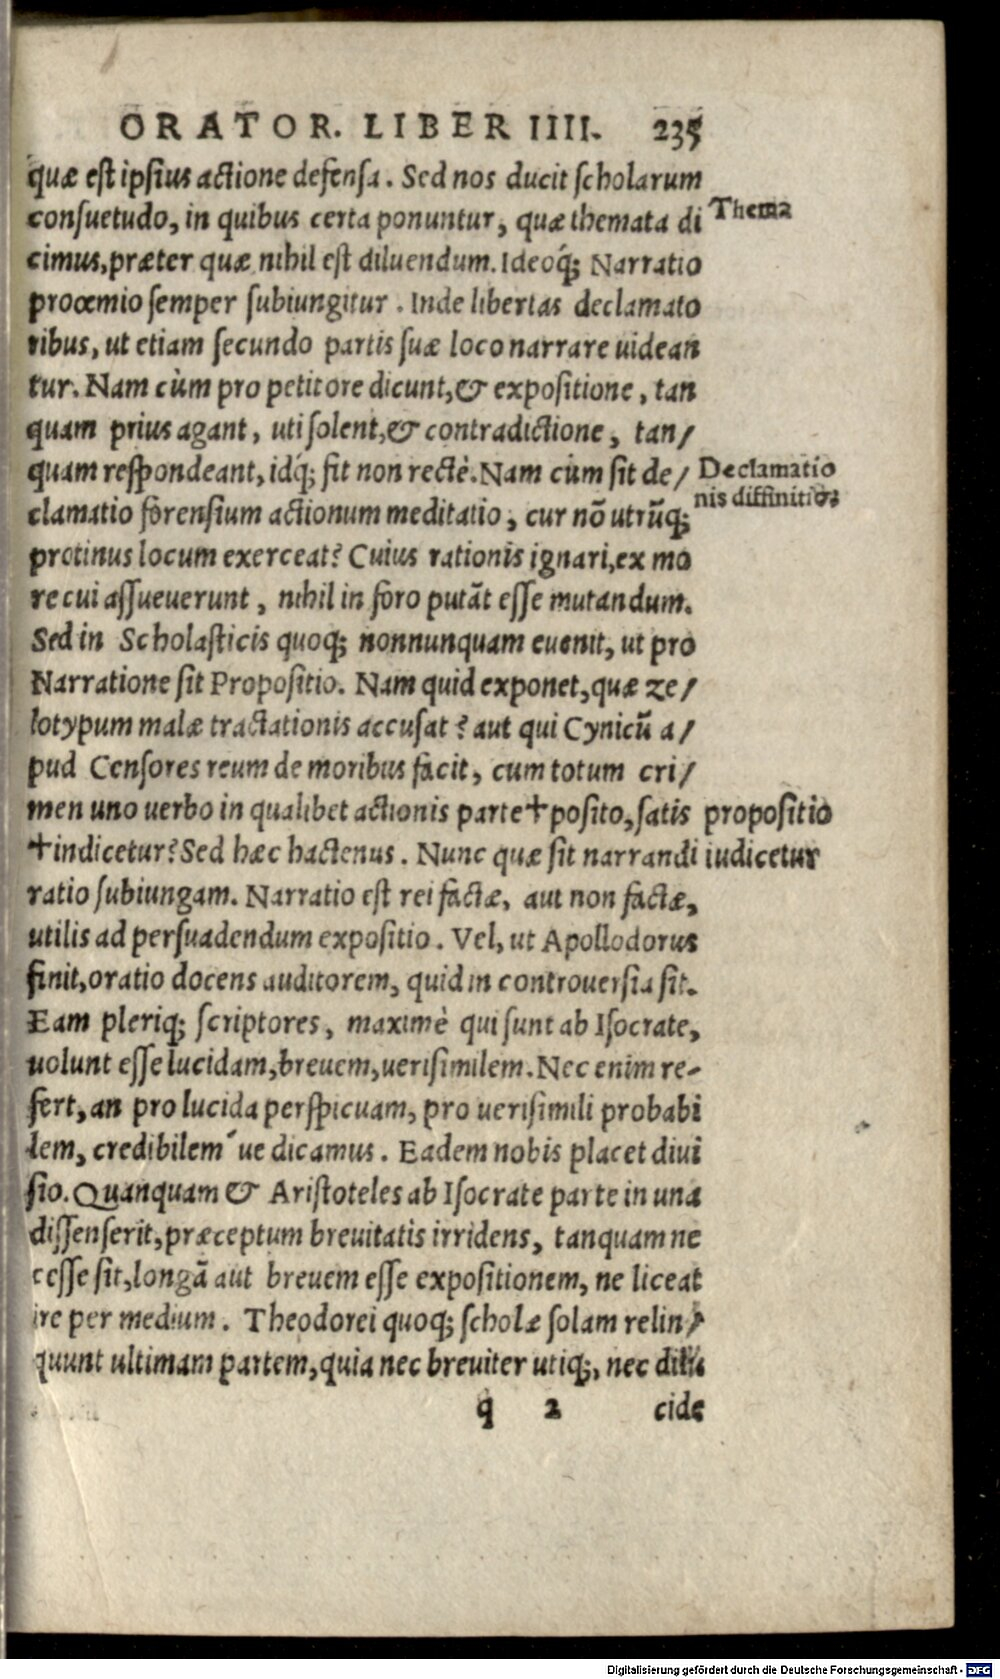 ORATOR. LIBER IIII. 235
quæ est ipsius actione defensa. Sed nos ducit scholarum
consuetudo, in quibus certa ponuntur, quæ themata di
Thema
cimus, præter quæ nihil est diluendum. Ideoq́; Narratio
proœmio semper subiungitur. Inde libertas declamato
ribus, ut etiam secundo partis suæ loco narrare uidean
tur. Nam cùm pro petitore dicunt, & expositione, tan
quam prius agant, uti solent, & contradictione, tan/
quam respondeant, idq́; fit non rectè. Nam cùm sit de/
Declamatio
nis diffinitio:
clamatio forensium actionum meditatio, cur nō utrūq;
protinus locum exerceat? Cuius rationis ignari, ex mo
re cui assueuerunt, nihil in foro putāt esse mutandum.
Sed in Scholasticis quoq; nonnunquam euenit, ut pro
Narratione sit Propositio. Nam quid exponet, quæ ze/
lotypum malæ tractationis accusat? aut qui Cynicū a/
pud Censores reum de moribus facit, cum totum cri/
men uno uerbo in qualibet actionis parte✝posito, satis
propositio
✝indicetur? Sed hæc hactenus. Nunc quæ sit narrandi
iudicetur
ratio subiungam. Narratio est rei factæ, aut non factæ,
utilis ad persuadendum expositio. Vel, ut Apollodorus
finit, oratio docens auditorem, quid in controuersia sit.
Eam pleriq; scriptores, maximè qui sunt ab Isocrate,
uolunt esse lucidam, breuem, uerisimilem. Nec enim re-
fert, an pro lucida perspicuam, pro uerisimili probabi
lem, credibilem´ue dicamus. Eadem nobis placet diui
sio. Quanquam & Aristoteles ab Isocrate parte in una
dissenserit, præceptum breuitatis irridens, tanquam ne
cesse sit, longā aut breuem esse expositionem, ne liceat
ire per medium. Theodorei quoq; scholæ solam relin/
quunt ultimam partem, quia nec breuiter utiq;, nec dilu
q 2 cide
Digitalisierung gefördert durch die Deutsche Forschungsgemeinschaft - DFG